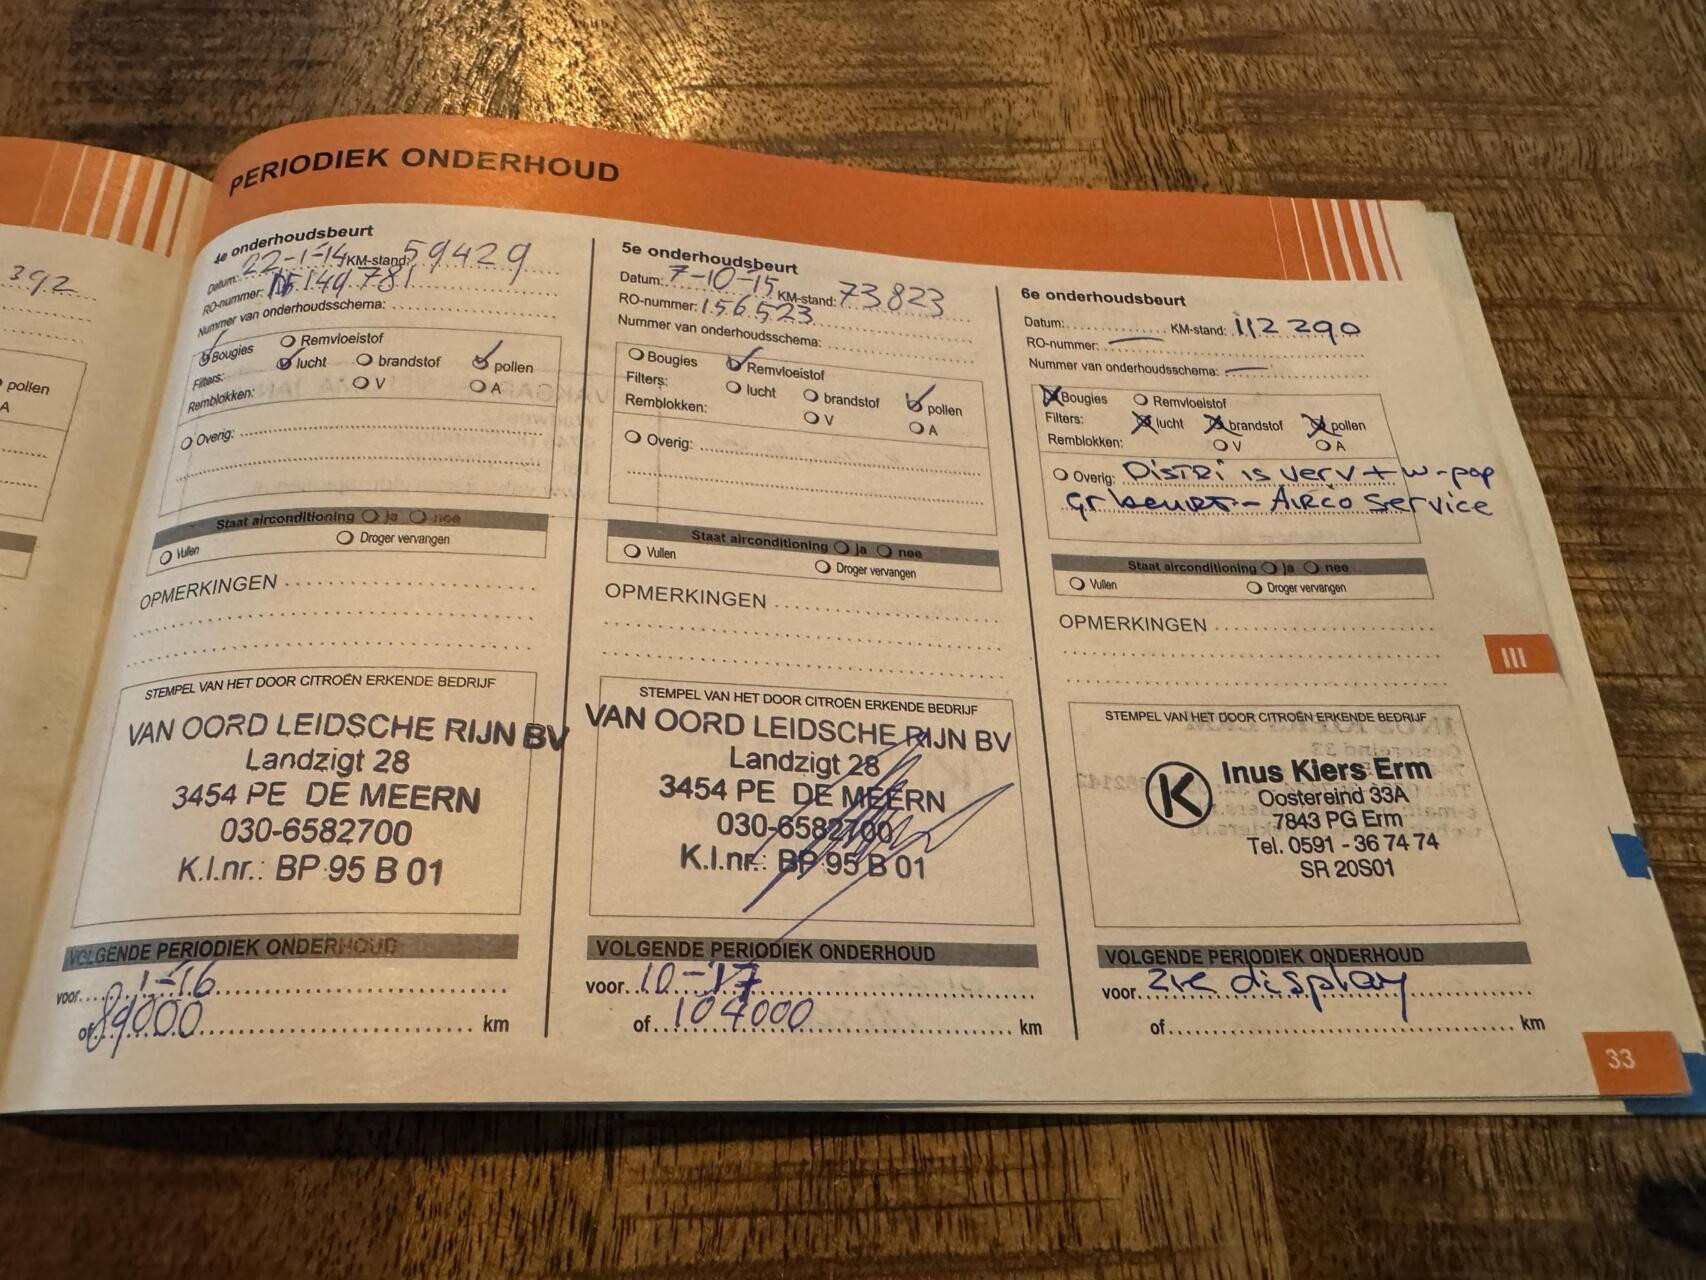 PERIODIEK ONDERHOUD
392
pollen
A
4e onderhoudsbeurt
Datum: 22-1-14 KM-stand: 59429
RO-nummer: 149781
Nummer van onderhoudsschema:
Bougies Remvloeistof
Filters: lucht brandstof pollen
Remblokken: V A
Overig:
Staat airconditioning ja nee
Vullen Droger vervangen
OPMERKINGEN
STEMPEL VAN HET DOOR CITROËN ERKENDE BEDRIJF
VAN OORD LEIDSCHE RIJN BV
Landzigt 28
3454 PE DE MEERN
030-6582700
K.I.nr.: BP 95 B 01
VOLGENDE PERIODIEK ONDERHOUD
voor 1-16
of 89000 km
5e onderhoudsbeurt
Datum: 7-10-15 KM-stand: 73823
RO-nummer: 156523
Nummer van onderhoudsschema:
Bougies Remvloeistof
Filters: lucht brandstof pollen
Remblokken: V A
Overig:
Staat airconditioning ja nee
Vullen Droger vervangen
OPMERKINGEN
STEMPEL VAN HET DOOR CITROËN ERKENDE BEDRIJF
VAN OORD LEIDSCHE RIJN BV
Landzigt 28
3454 PE DE MEERN
030-6582700
K.I.nr.: BP 95 B 01
VOLGENDE PERIODIEK ONDERHOUD
voor 10-17
of 104000 km
6e onderhoudsbeurt
Datum: KM-stand: 112290
RO-nummer: —
Nummer van onderhoudsschema: —
Bougies Remvloeistof
Filters: lucht brandstof pollen
Remblokken: V A
Overig: DisTRi is verv + w-pop
gr beurt - AiRCO Service
Staat airconditioning ja nee
Vullen Droger vervangen
OPMERKINGEN
STEMPEL VAN HET DOOR CITROËN ERKENDE BEDRIJF
K Inus Kiers Erm
Oostereind 33A
7843 PG Erm
Tel. 0591 - 36 74 74
SR 20S01
VOLGENDE PERIODIEK ONDERHOUD
voor zie display
of km
III
33